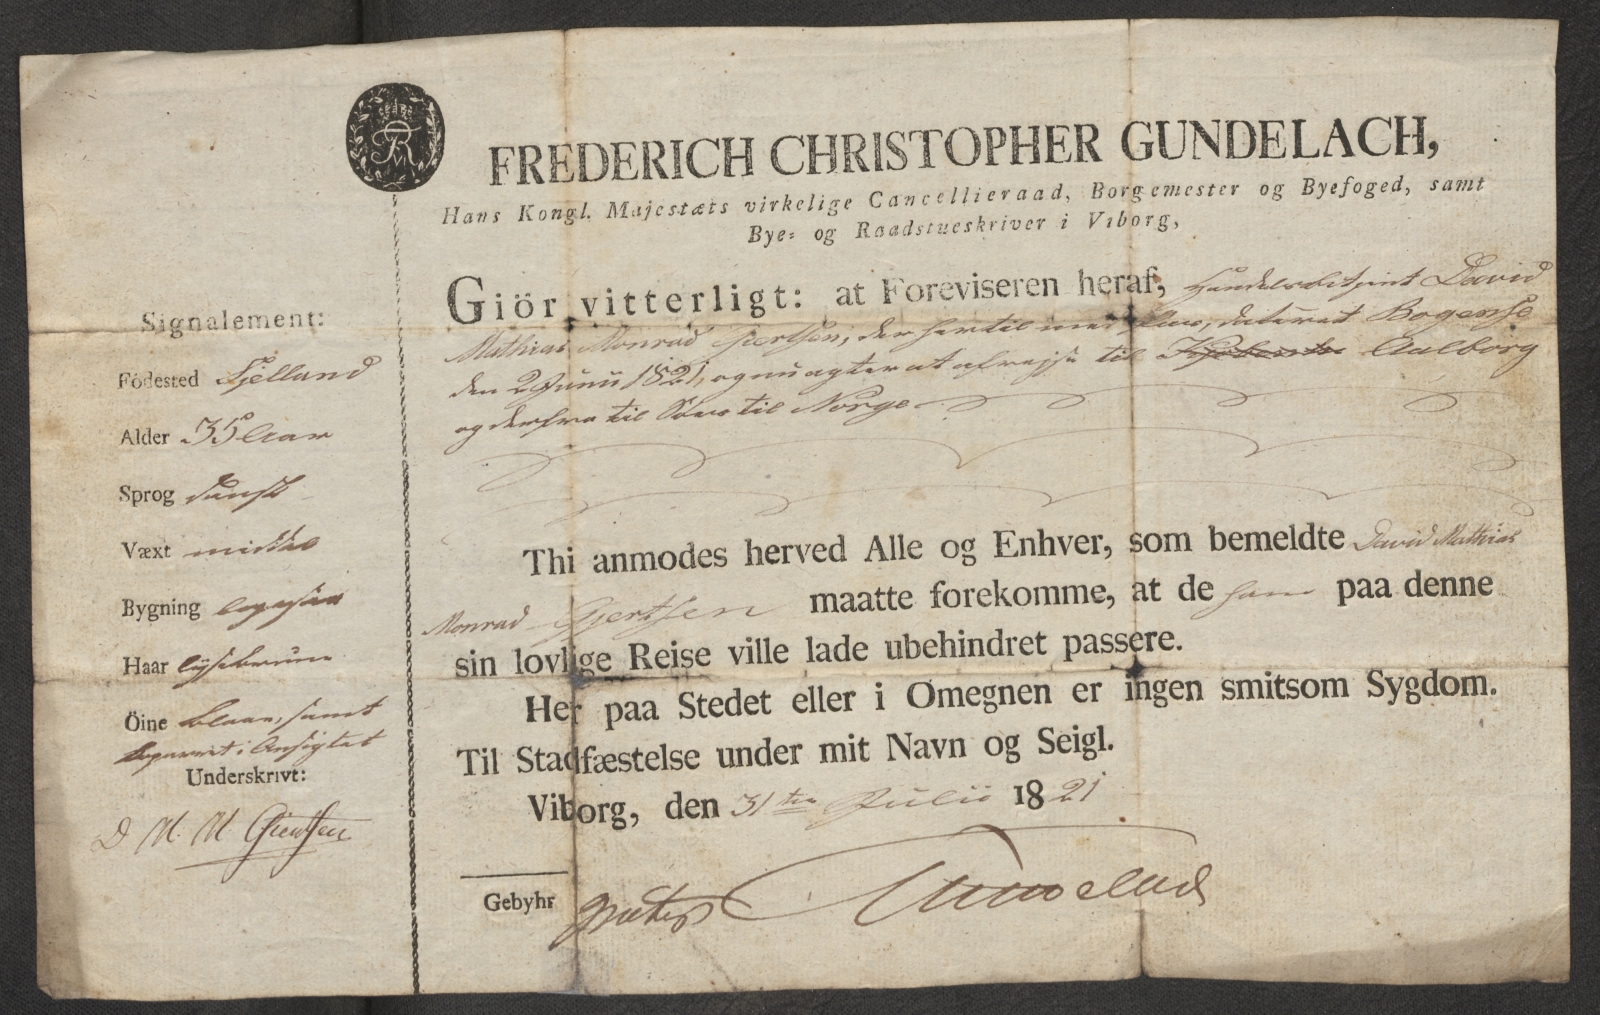 FREDERICH CHRISTOPHER GUNDELACH,
Hans Kongl. Majestæts virkelige Cancellieraad, Borgemester og Byefoged, samt
Bye- og Raadstueskriver i Viborg,
Giör vitterligt: at Foreviseren heraf, Handelsbetjent David
Mathias Monrad Giertsen, der hertil med Pass, dateret Bogense
den 2 Junii 1821, og nu agter at afrejse til Aalborg
og derfra til Søes til Norge
Thi anmodes herved Alle og Enhver, som bemeldte David Mathias
Monrad Gjertsen maatte forekomme, at de ham paa denne
sin lovlige Reise ville lade ubehindret passere.
Her paa Stedet eller i Omegnen er ingen smitsom Sygdom.
Til Stadfæstelse under mit Navn og Seigl.
Viborg, den 31te Julii 1821
Gebyhr gratis Gundelach
Signalement:
Födested Sjelland
Alder 35 Aar
Sprog dansk
Væxt middel
Bygning
Haar lysebrune
Öine blaae, samt
coparret i Ansigtet
Underskrivt:
D M. M Giertsen